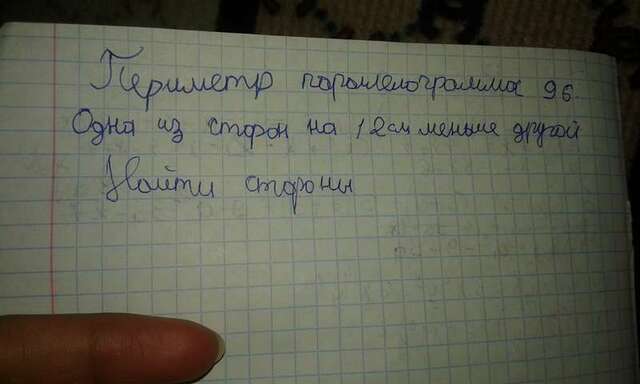 Периметр параллелограмма 96.
Одна из сторон на 12см меньше другой
Найти стороны